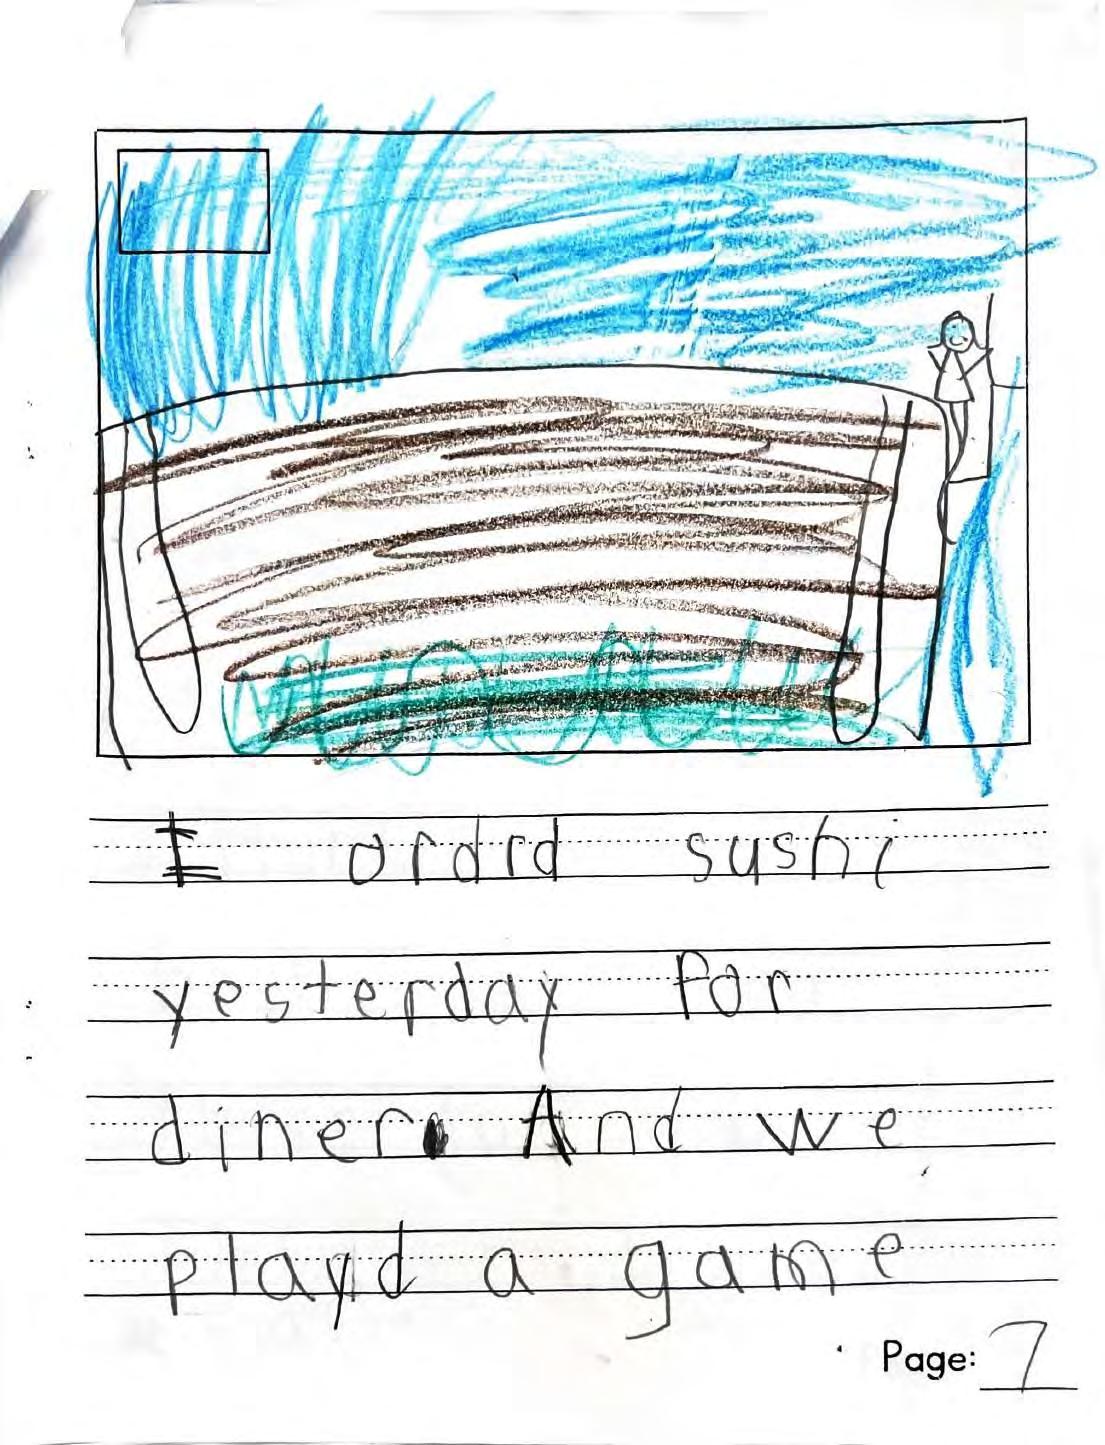 I ordrd sushi
yesterday for
diner. And we
playd a game
Page: 7